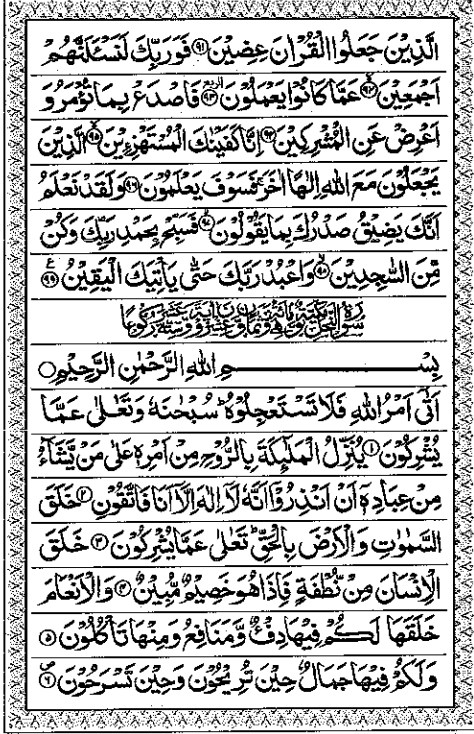 الَّذِيْنَ جَعَلُوا الْقُرْاٰنَ عِضِيْنَ ﴿۹۱﴾ فَوَرَبِّكَ لَنَسْـَٔلَنَّهُمْ
اَجْمَعِيْنَ ﴿۹۲﴾ عَمَّا كَانُوْا يَعْمَلُوْنَ ﴿۹۳﴾ فَاصْدَعْ بِمَا تُؤْمَرُ وَ
اَعْرِضْ عَنِ الْمُشْرِكِيْنَ ﴿۹۴﴾ اِنَّا كَفَيْنٰكَ الْمُسْتَهْزِءِيْنَ ﴿۹۵﴾ الَّذِيْنَ
يَجْعَلُوْنَ مَعَ اللّٰهِ اِلٰهًا اٰخَرَ ۚ فَسَوْفَ يَعْلَمُوْنَ ﴿۹۶﴾ وَلَقَدْ نَعْلَمُ
اَنَّكَ يَضِيْقُ صَدْرُكَ بِمَا يَقُوْلُوْنَ ﴿۹۷﴾ فَسَبِّحْ بِحَمْدِ رَبِّكَ وَكُنْ
مِّنَ السّٰجِدِيْنَ ﴿۹۸﴾ وَاعْبُدْ رَبَّكَ حَتّٰى يَاْتِيَكَ الْيَقِيْنُ ﴿۹۹﴾
سورة النحل مكية وهي مائة وثمان وعشرون آية وستة عشر ركوعا
بِسْمِ اللّٰهِ الرَّحْمٰنِ الرَّحِيْمِ
اَتٰٓى اَمْرُ اللّٰهِ فَلَا تَسْتَعْجِلُوْهُ ؕ سُبْحٰنَهٗ وَتَعٰلٰى عَمَّا
يُشْرِكُوْنَ ﴿۱﴾ يُنَزِّلُ الْمَلٰٓئِكَةَ بِالرُّوْحِ مِنْ اَمْرِهٖ عَلٰى مَنْ يَّشَآءُ
مِنْ عِبَادِهٖۤ اَنْ اَنْذِرُوْۤا اَنَّهٗ لَاۤ اِلٰهَ اِلَّاۤ اَنَا فَاتَّقُوْنِ ﴿۲﴾ خَلَقَ
السَّمٰوٰتِ وَالْاَرْضَ بِالْحَقِّ ؕ تَعٰلٰى عَمَّا يُشْرِكُوْنَ ﴿۳﴾ خَلَقَ
الْاِنْسَانَ مِنْ نُّطْفَةٍ فَاِذَا هُوَ خَصِيْمٌ مُّبِيْنٌ ﴿۴﴾ وَالْاَنْعَامَ
خَلَقَهَا ۚ لَكُمْ فِيْهَا دِفْءٌ وَّمَنَافِعُ وَمِنْهَا تَاْكُلُوْنَ ﴿۵﴾
وَلَكُمْ فِيْهَا جَمَالٌ حِيْنَ تُرِيْحُوْنَ وَحِيْنَ تَسْرَحُوْنَ ﴿۶﴾